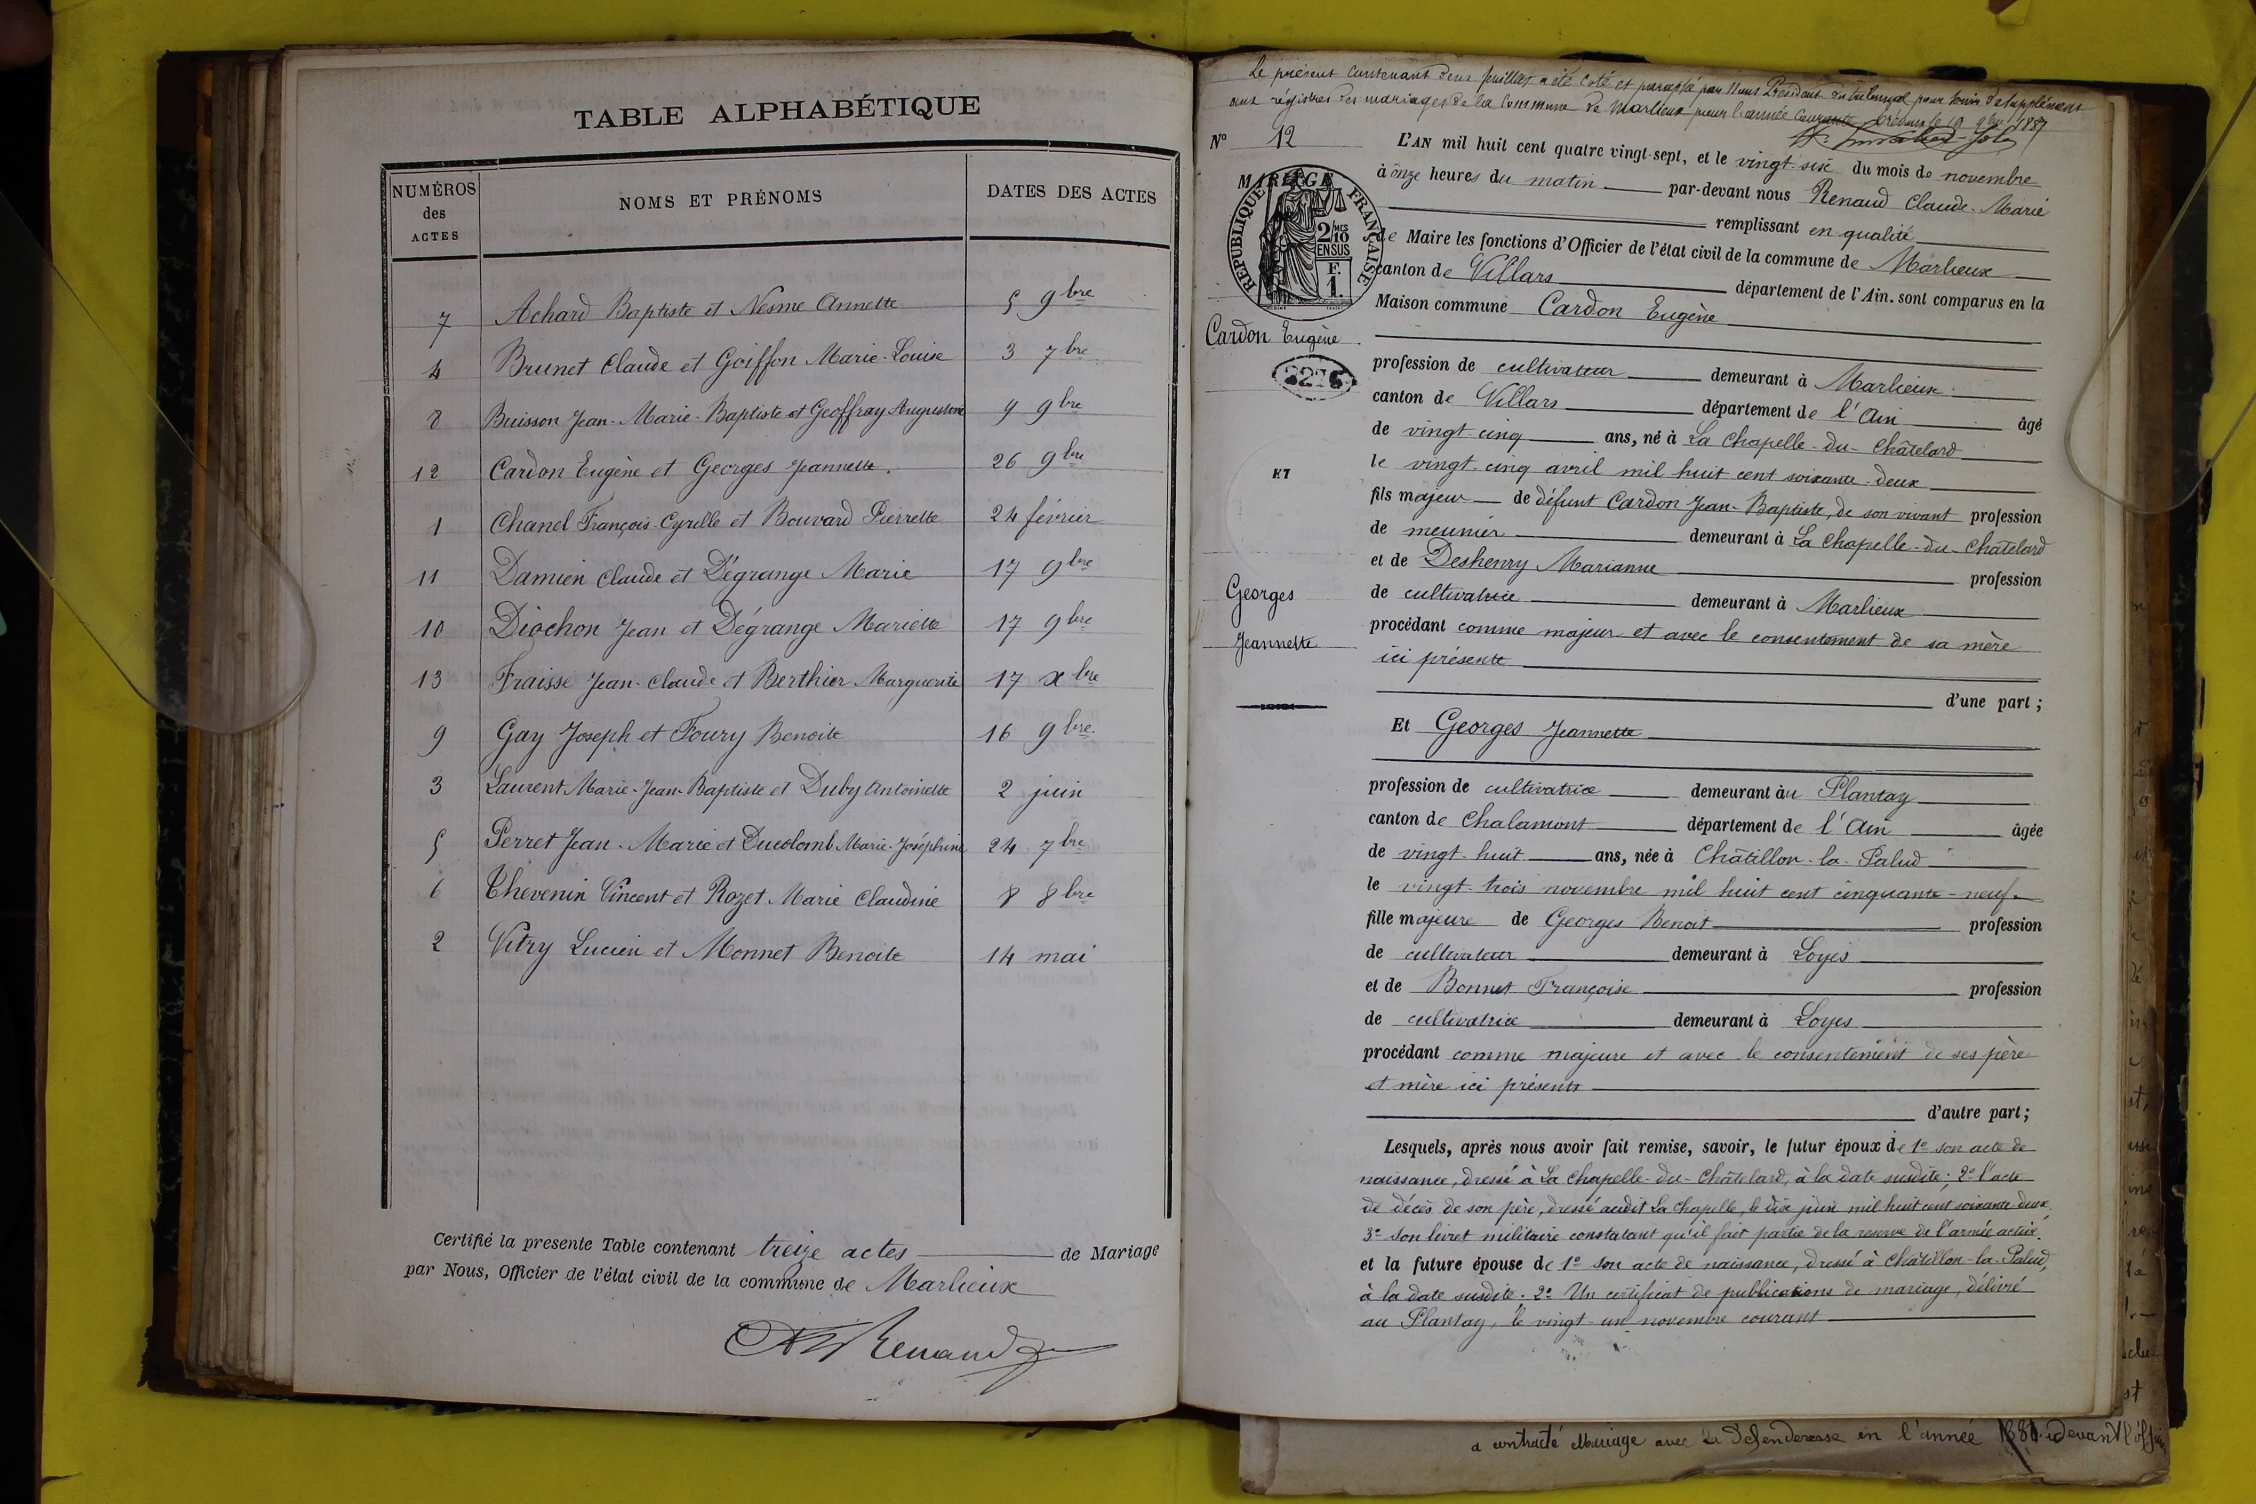 TABLE ALPHABÉTIQUE
NUMÉROS des ACTES
NOMS ET PRÉNOMS
DATES DES ACTES
7 Achard Baptiste et Nesme Annette 5 9bre
4 Brunet Claude et Goiffon Marie-Louise 3 7bre
8 Buisson Jean-Marie-Baptiste et Geoffray Augustine 9 9bre
12 Cardon Eugène et Georges Jeannette. 26 9bre
1 Chanel François-Cyrille et Bouvard Pierrette 24 février
11 Damien Claude et Dégrange Marie 17 9bre
10 Diochon Jean et Dégrange Mariette 17 9bre
13 Fraisse Jean-Claude et Berthier Marguerite 17 xbre
9 Gay Joseph et Foury Benoite 16 9bre
3 Laurent Marie-Jean-Baptiste et Duby Antoinette 2 juin
5 Perret Jean-Marie et Ducolomb Marie-Joséphine 24 7bre
6 Thevenin Vincent et Rozet Marie Claudine 8 8bre
2 Vitry Lucien et Monnet Benoite 14 mai
Certifié la presente Table contenant treize actes de Mariage
par Nous, Officier de l'état civil de la commune de Marlieux
Renaud
Le présent contenant deux feuilles a été coté et paraphé par Nous Président du tribunal pour servir de supplément
aux régistres des mariages de la Commune de Marlieux pour l'année Courante Trévoux le 19 9bre 1887
N° 12
MARIAGE
RÉPUBLIQUE FRANÇAISE
2/10 MES
EN SUS
F.
1.
L'AN mil huit cent quatre vingt-sept, et le vingt-six du mois de novembre
à onze heures du matin par-devant nous Renaud Claude-Marie
remplissant en qualité
de Maire les fonctions d'Officier de l'état civil de la commune de Marlieux
canton de Villars département de l'Ain. sont comparus en la
Maison commune Cardon Eugène
Cardon Eugène
profession de cultivateur demeurant à Marlieux
canton de Villars département de l'Ain âgé
de vingt-cinq ans, né à La Chapelle-du-Châtelard
le vingt-cinq avril mil huit cent soixante-deux
ET
fils majeur de défunt Cardon Jean-Baptiste, de son vivant profession
de meunier demeurant à La Chapelle-du-Châtelard
et de Deshenry Marianne profession
de cultivatrice demeurant à Marlieux
Georges
Jeannette
procédant comme majeur et avec le consentement de sa mère
ici présente
d'une part ;
Et Georges Jeannette
profession de cultivatrice demeurant au Plantay
canton de Chalamont département de l'Ain âgée
de vingt-huit ans, née à Châtillon-la-Palud
le vingt-trois novembre mil huit cent cinquante-neuf
fille majeure de Georges Benoit profession
de cultivateur demeurant à Loyes
et de Bonnet Françoise profession
de cultivatrice demeurant à Loyes
procédant comme majeure et avec le consentement de ses père
et mère ici présents
d'autre part ;
Lesquels, après nous avoir fait remise, savoir, le futur époux de 1° son acte de
naissance, dressé à La Chapelle-du-Châtelard, à la date susdite; 2° l'acte
de décès de son père, dressé audit La Chapelle, le dix juin mil huit cent soixante deux
3° Son livret militaire constatant qu'il fait partie de la reserve de l'armée active.
et la future épouse de 1° Son acte de naissance, dressé à Châtillon-la-Palud,
à la date susdite. 2° Un certificat de publications de mariage, délivré
au Plantay, le vingt-un novembre courant
a contracté Mariage avec la defenderesse en l'année devant l'offi